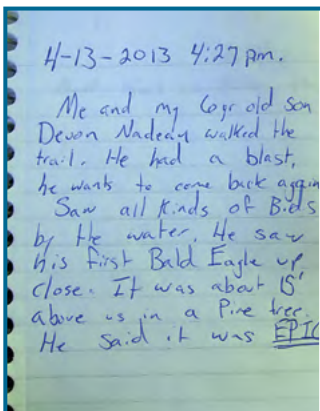 4-13-2013 4:27 pm.
Me and my 6yr old son
Devon Nadeau walked the
trail. He had a blast,
he wants to come back again
Saw all Kinds of Birds
by the water. He saw
his first Bald Eagle up
close. It was about 15'
above us in a Pine tree.
He said it was EPIC